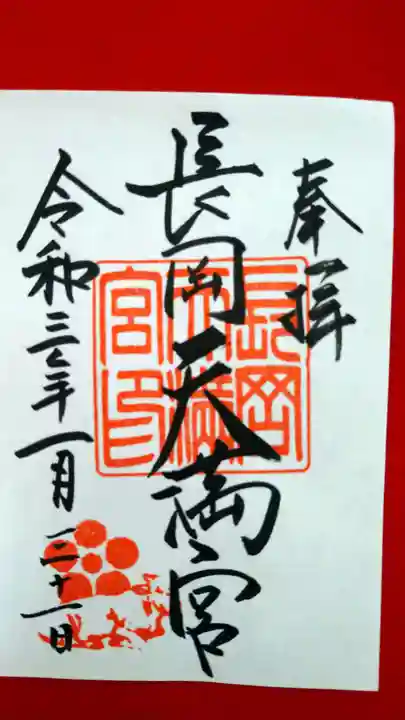 奉拝
長岡天満宮
長岡天満宮印
令和三年一月二十一日